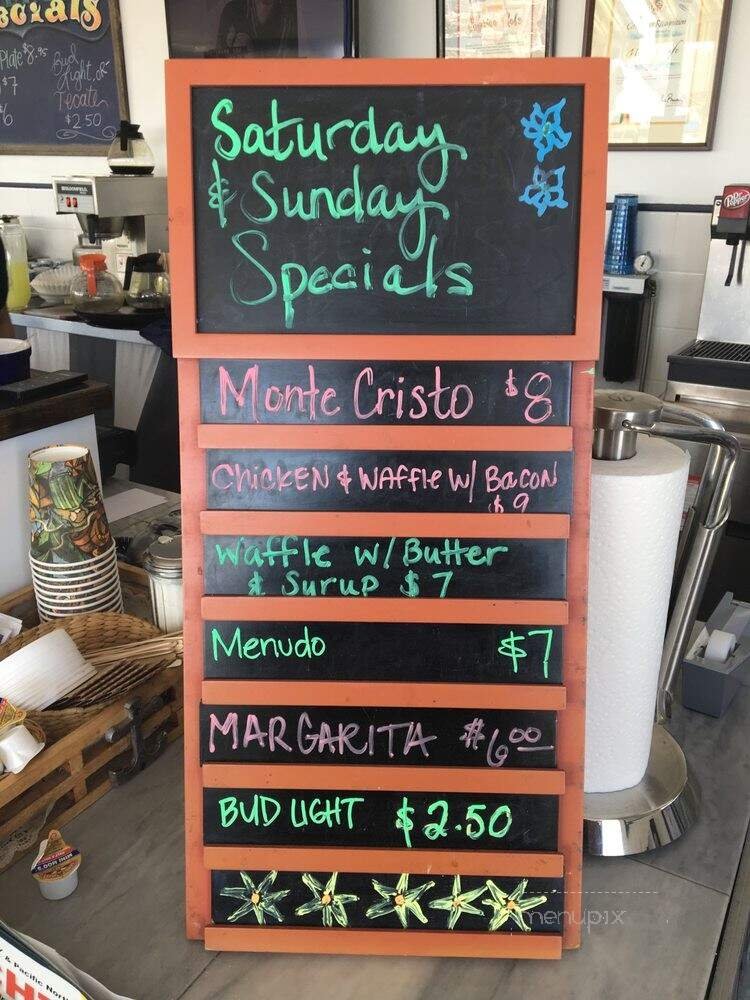 Specials
Plate $8.95
$7
Bud
Light or
Tecate
$2.50
BLOOMFIELD
Dr Pepper
Saturday
& Sunday
Specials
Monte Cristo $8
CHICKEN & WAFFLE W/ BACON
$9
Waffle w/ Butter
& Surup $7
Menudo $7
MARGARITA $6.00
BUD LIGHT $2.50
MINI MOO'S
menupix
& Pacific Nort